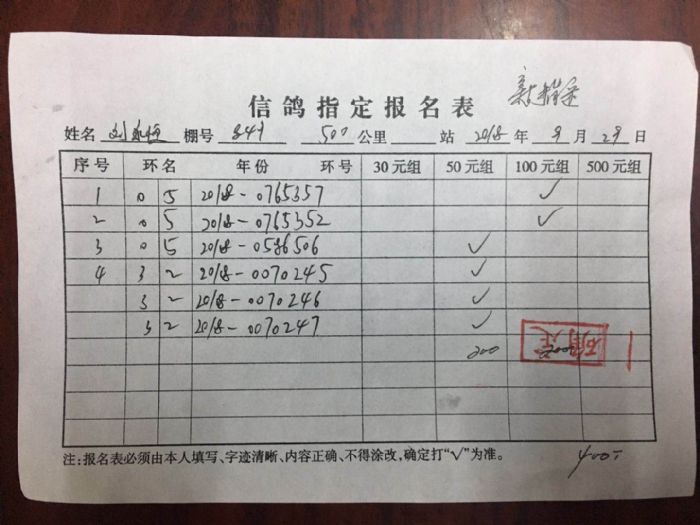 信鸽指定报名表
姓名 刘永恒 棚号 841 500 公里 站 2018 年 9 月 29 日
序号 环名 年份 环号 30元组 50元组 100元组 500元组
1 05 2018-0765357 ✓
2 05 2018-0765352 ✓
3 05 2018-0586506 ✓
4 32 2018-0070245 ✓
32 2018-0070246 ✓
32 2018-0070247 ✓
200 200
注:报名表必须由本人填写、字迹清晰、内容正确、不得涂改,确定打“√”为准。
400